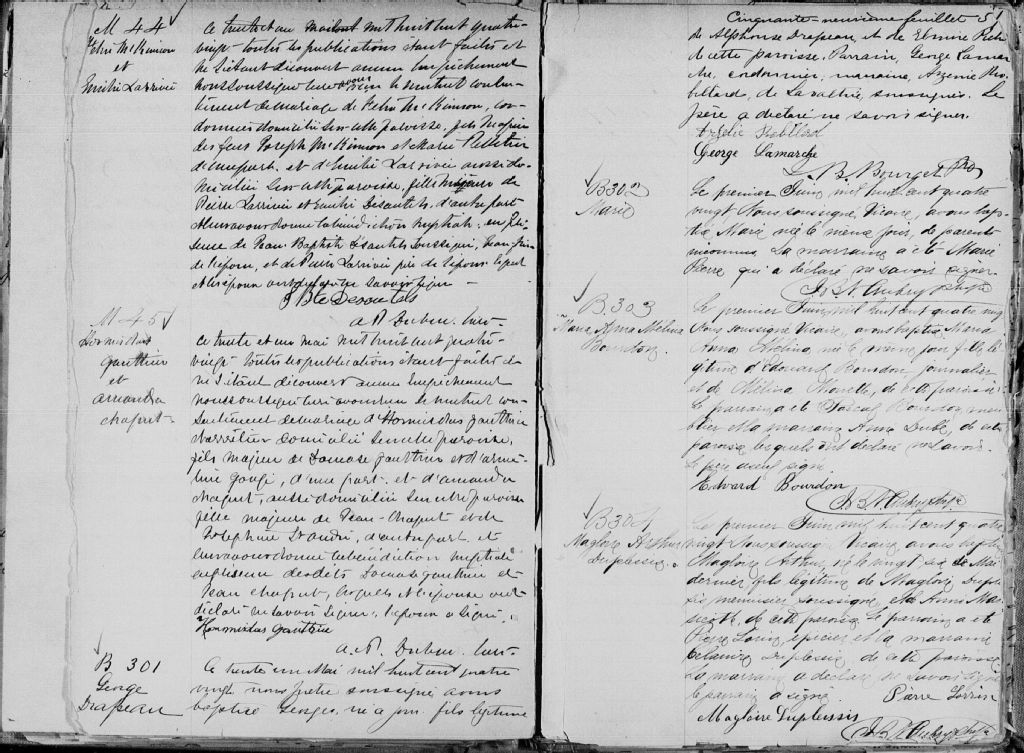 M 44
Mc Kinnon
et
Emilie Larrivée
Ce trente et un mai mil huit cent quatre
vingt toutes les publications étant faites et
ne s'étant découvert aucun empêchement
nous soussigné curé avons reçu le mutuel consen-
tement de mariage de Mc Kinnon, cor-
donnier domicilié en cette paroisse, fils majeur
des feus Joseph Mc Kinnon et Marie Pelletier
d'une part, et d'Emilie Larrivée aussi do-
miciliée en cette paroisse, fille mineure de
Pierre Larrivée et Emilie Desautels d'autre part
et leur avons donné la bénédiction nuptiale en pré-
sence de Jean Baptiste Desautels soussigné,
de l'époux, et de Pierre Larrivée père de l'épouse lequel
et les époux ont déclaré ne savoir signer
J Bte Desautels
curé
M 45
Hormisdas
Gauthier
et
Amanda
Chaput
Ce trente et un mai mil huit cent quatre-
vingt toutes les publications étant faites et
ne s'étant découvert aucun empêchement
nous soussigné curé avons reçu le mutuel con-
sentement de mariage d'Hormisdas Gauthier
charretier domicilié en cette paroisse,
fils majeur de Damase Gauthier et d'
d'une part, et d'Amanda
Chaput, aussi domiciliée en cette paroisse
fille majeure de Jean Chaput et de
Joséphine d'autre part, et
leur avons donné la bénédiction nuptiale
en présence desdits Damase Gauthier et
Jean Chaput, lesquels et l'épouse ont
déclaré ne savoir signer, l'époux a signé.
Hormisdas Gauthier
curé
B 301
George
Drapeau
Ce trente un Mai mil huit cent quatre
vingt nous prêtre soussigné avons
baptisé George, né ce jour fils légitime
Cinquante-neuvième feuillet 59
de Alphonse Drapeau, et de Elmire
de cette paroisse. Parrain, George Lamar-
che, cordonnier, marraine, Azénie Ro-
billard, de Lavaltrie, soussignés. Le
père a déclaré ne savoir signer.
Robillard
George Lamarche
B. Bourget Ptre
B302
Marie
Le premier Juin mil huit cent quatre
vingt Nous soussigné Vicaire, avons bap-
tisé Marie née le même jour, de parents
inconnus. La marraine a été Marie
Pierre qui a déclaré ne savoir signer.
B303
Marie Anna Mélina
Bourdon
Le premier Juin, mil huit cent quatre vingt
Nous soussigné Vicaire, avons baptisé Marie
Anna Mélina, née le même jour fille lé-
gitime d'Edouard Bourdon journalier
et de Mélina de cette paroisse
Le parrain a été Pascal Bourdon
et la marraine Anna Dubé, de cette
paroisse lesquels ont déclaré ne savoir
Le père a signé
Edward Bourdon
B304
Magloire Arthur
Duplessis
Le premier Juin mil huit cent quatre
vingt Nous soussigné Vicaire, avons baptisé
Magloire Arthur, né le vingt six de Mai
dernier, fils légitime de Magloire Duples-
sis menuisier soussigné, et de Anna
de cette paroisse. Le parrain a été
Pierre épicier et la marraine
Duplessis, de cette paroisse
La marraine a déclaré ne savoir signer
le parrain a signé
Pierre
Magloire Duplessis